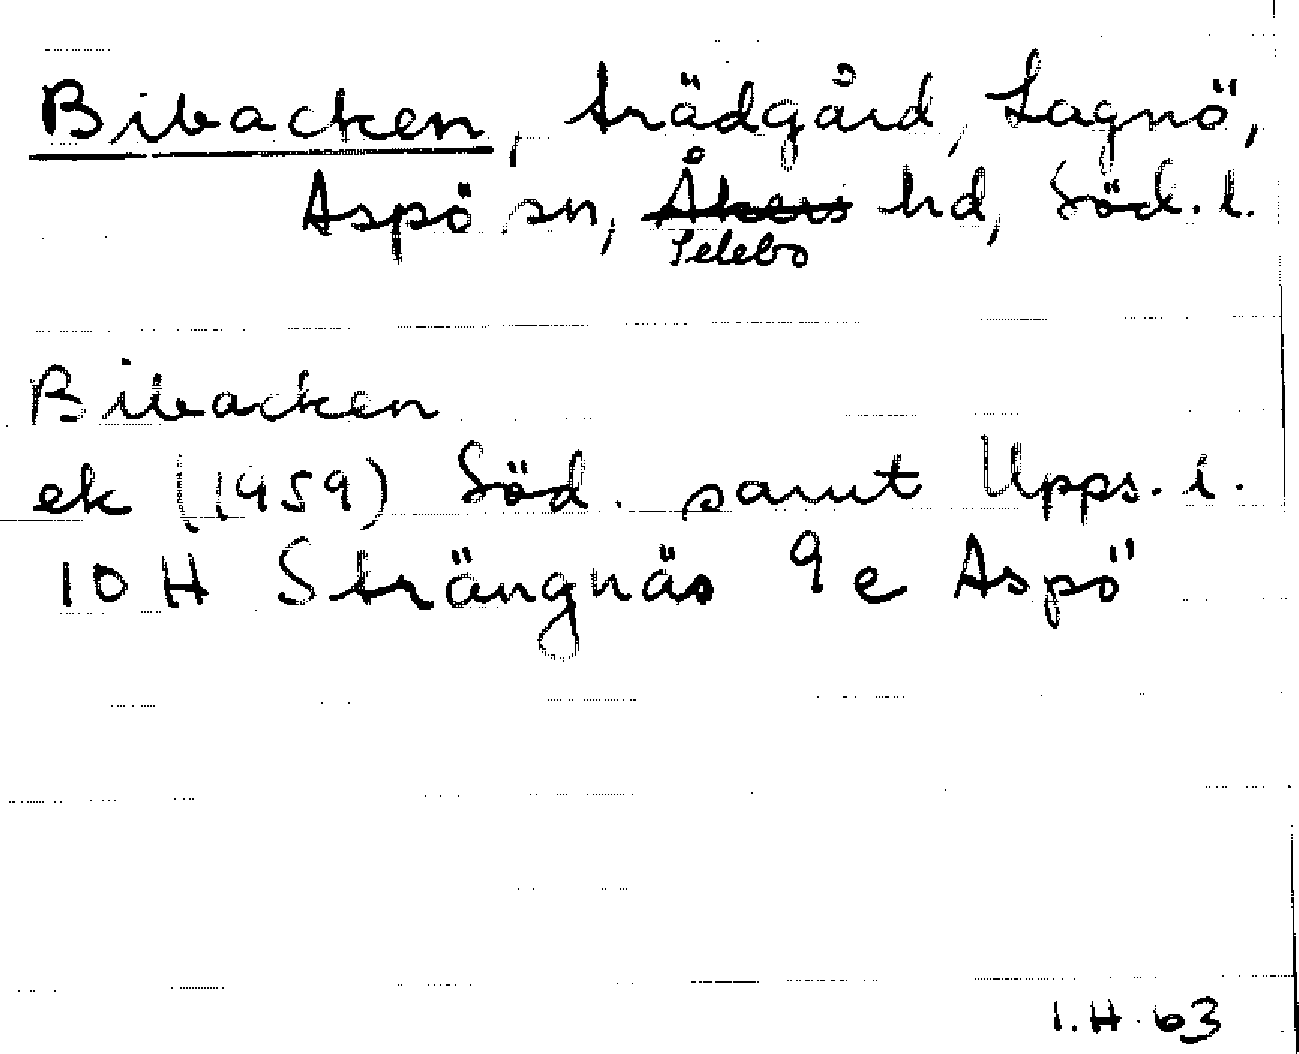 Bibacken, trädgård, Lagnö,
Aspö sn, Åkers hd, Söd. l.
Selebo
Bibacken
ek (1959) Söd. samt Upps. l.
10 H Strängnäs 9 e Aspö
I.H. 63